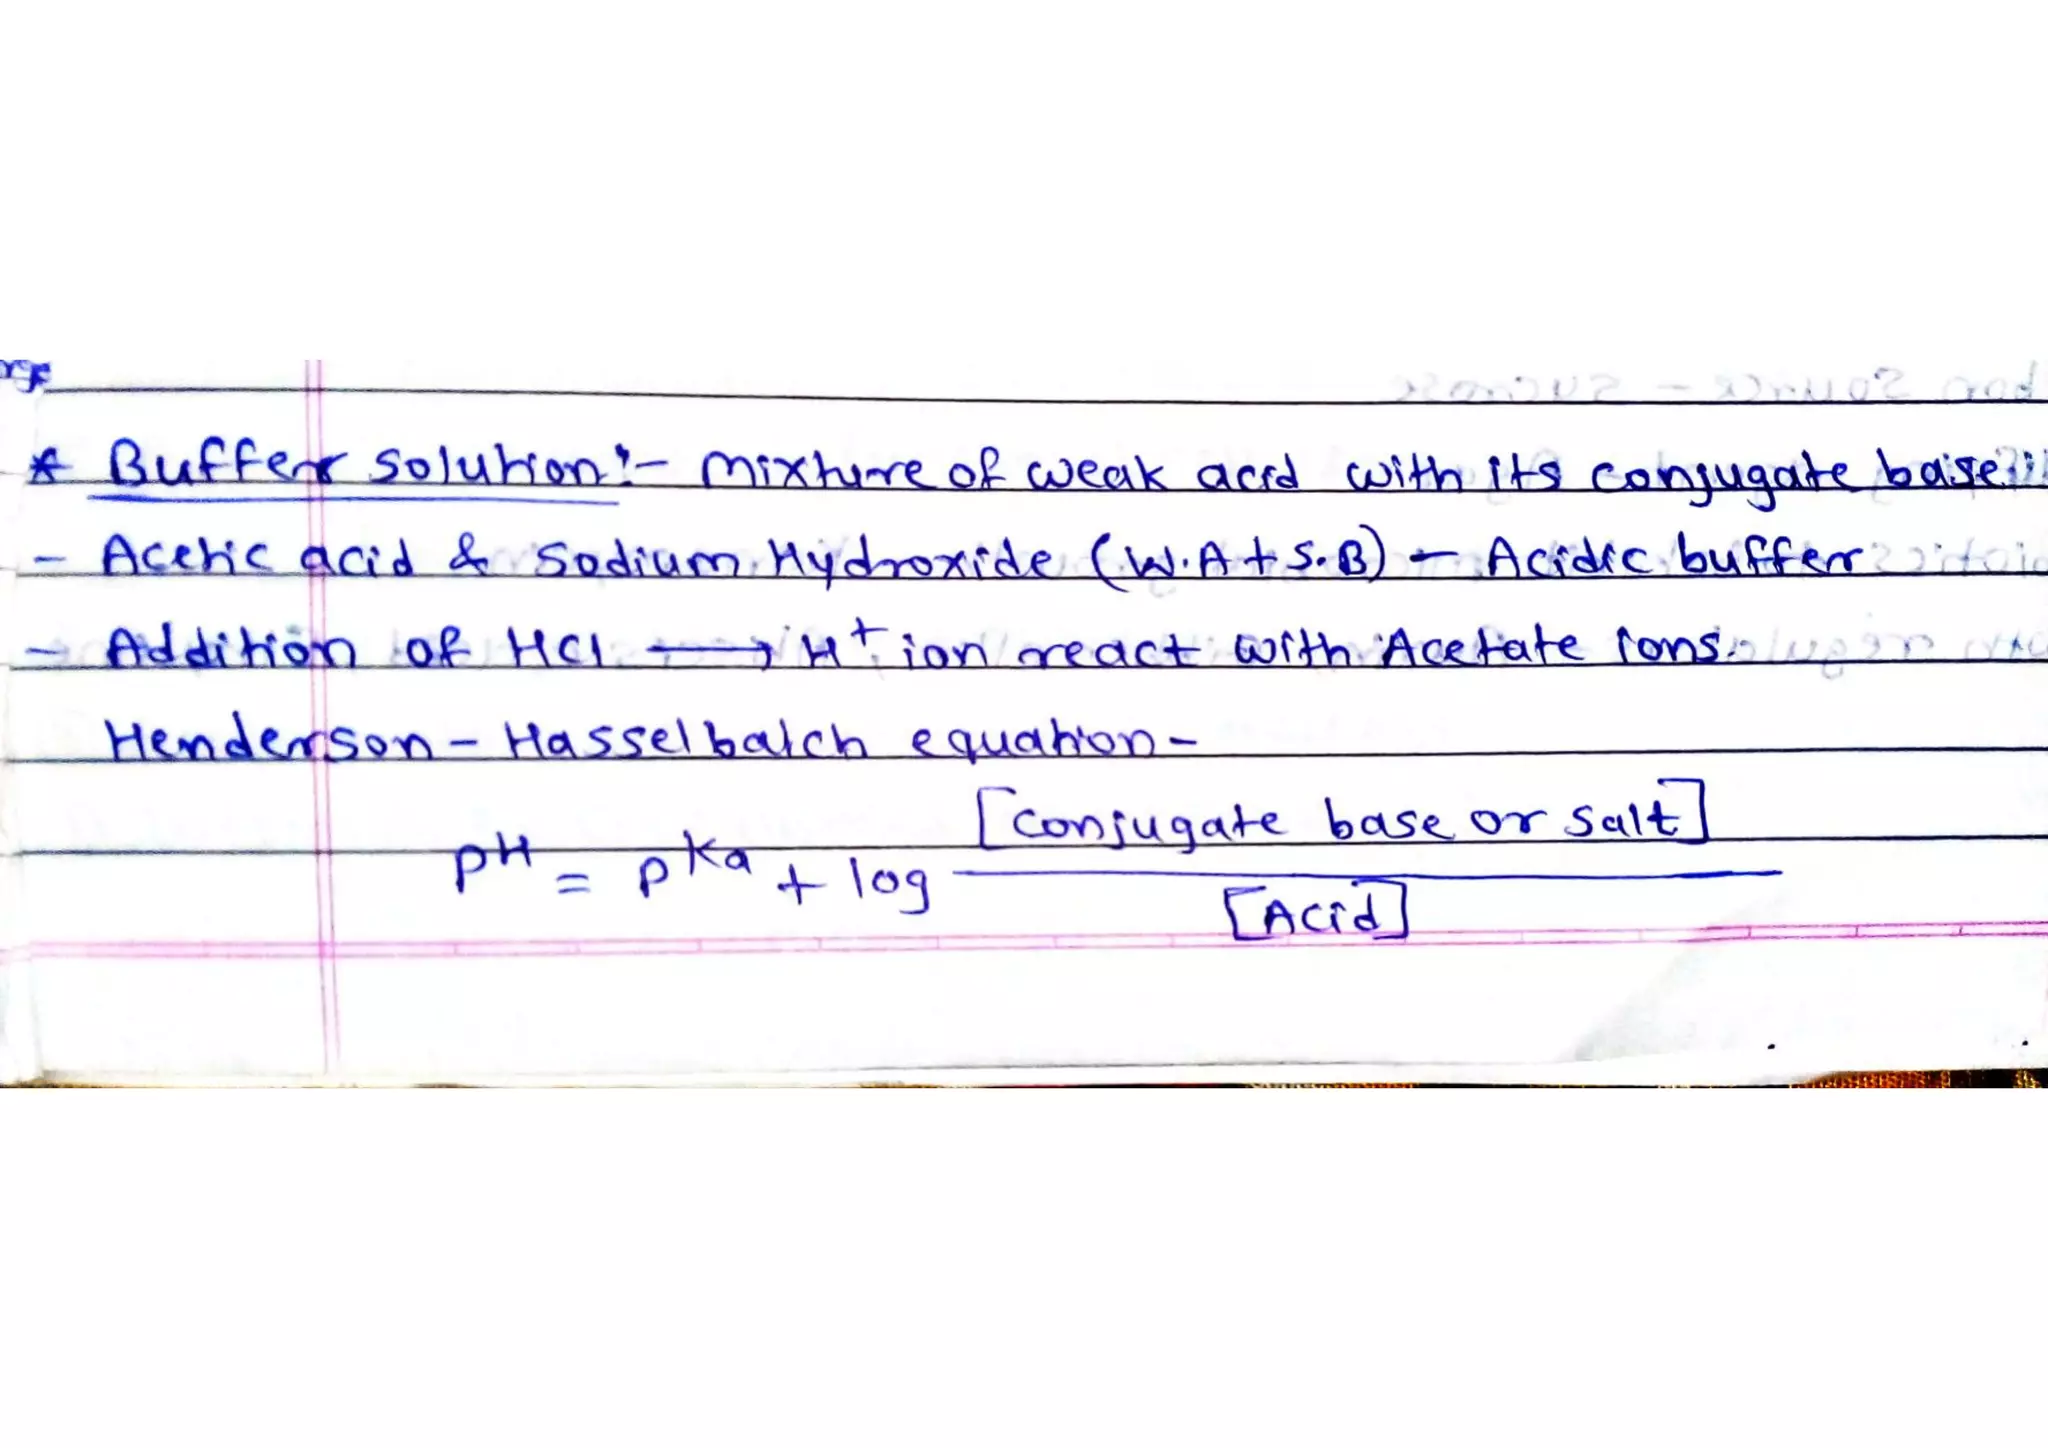 * Buffer solution :- Mixture of weak acid with its conjugate base.
- Acetic acid & Sodium Hydroxide (W.A + S.B) - Acidic buffer
- Addition of HCl ⟶ H⁺ ion react with Acetate ions.
Henderson - Hasselbalch equation -
[conjugate base or salt]
pH = pKa + log
[Acid]